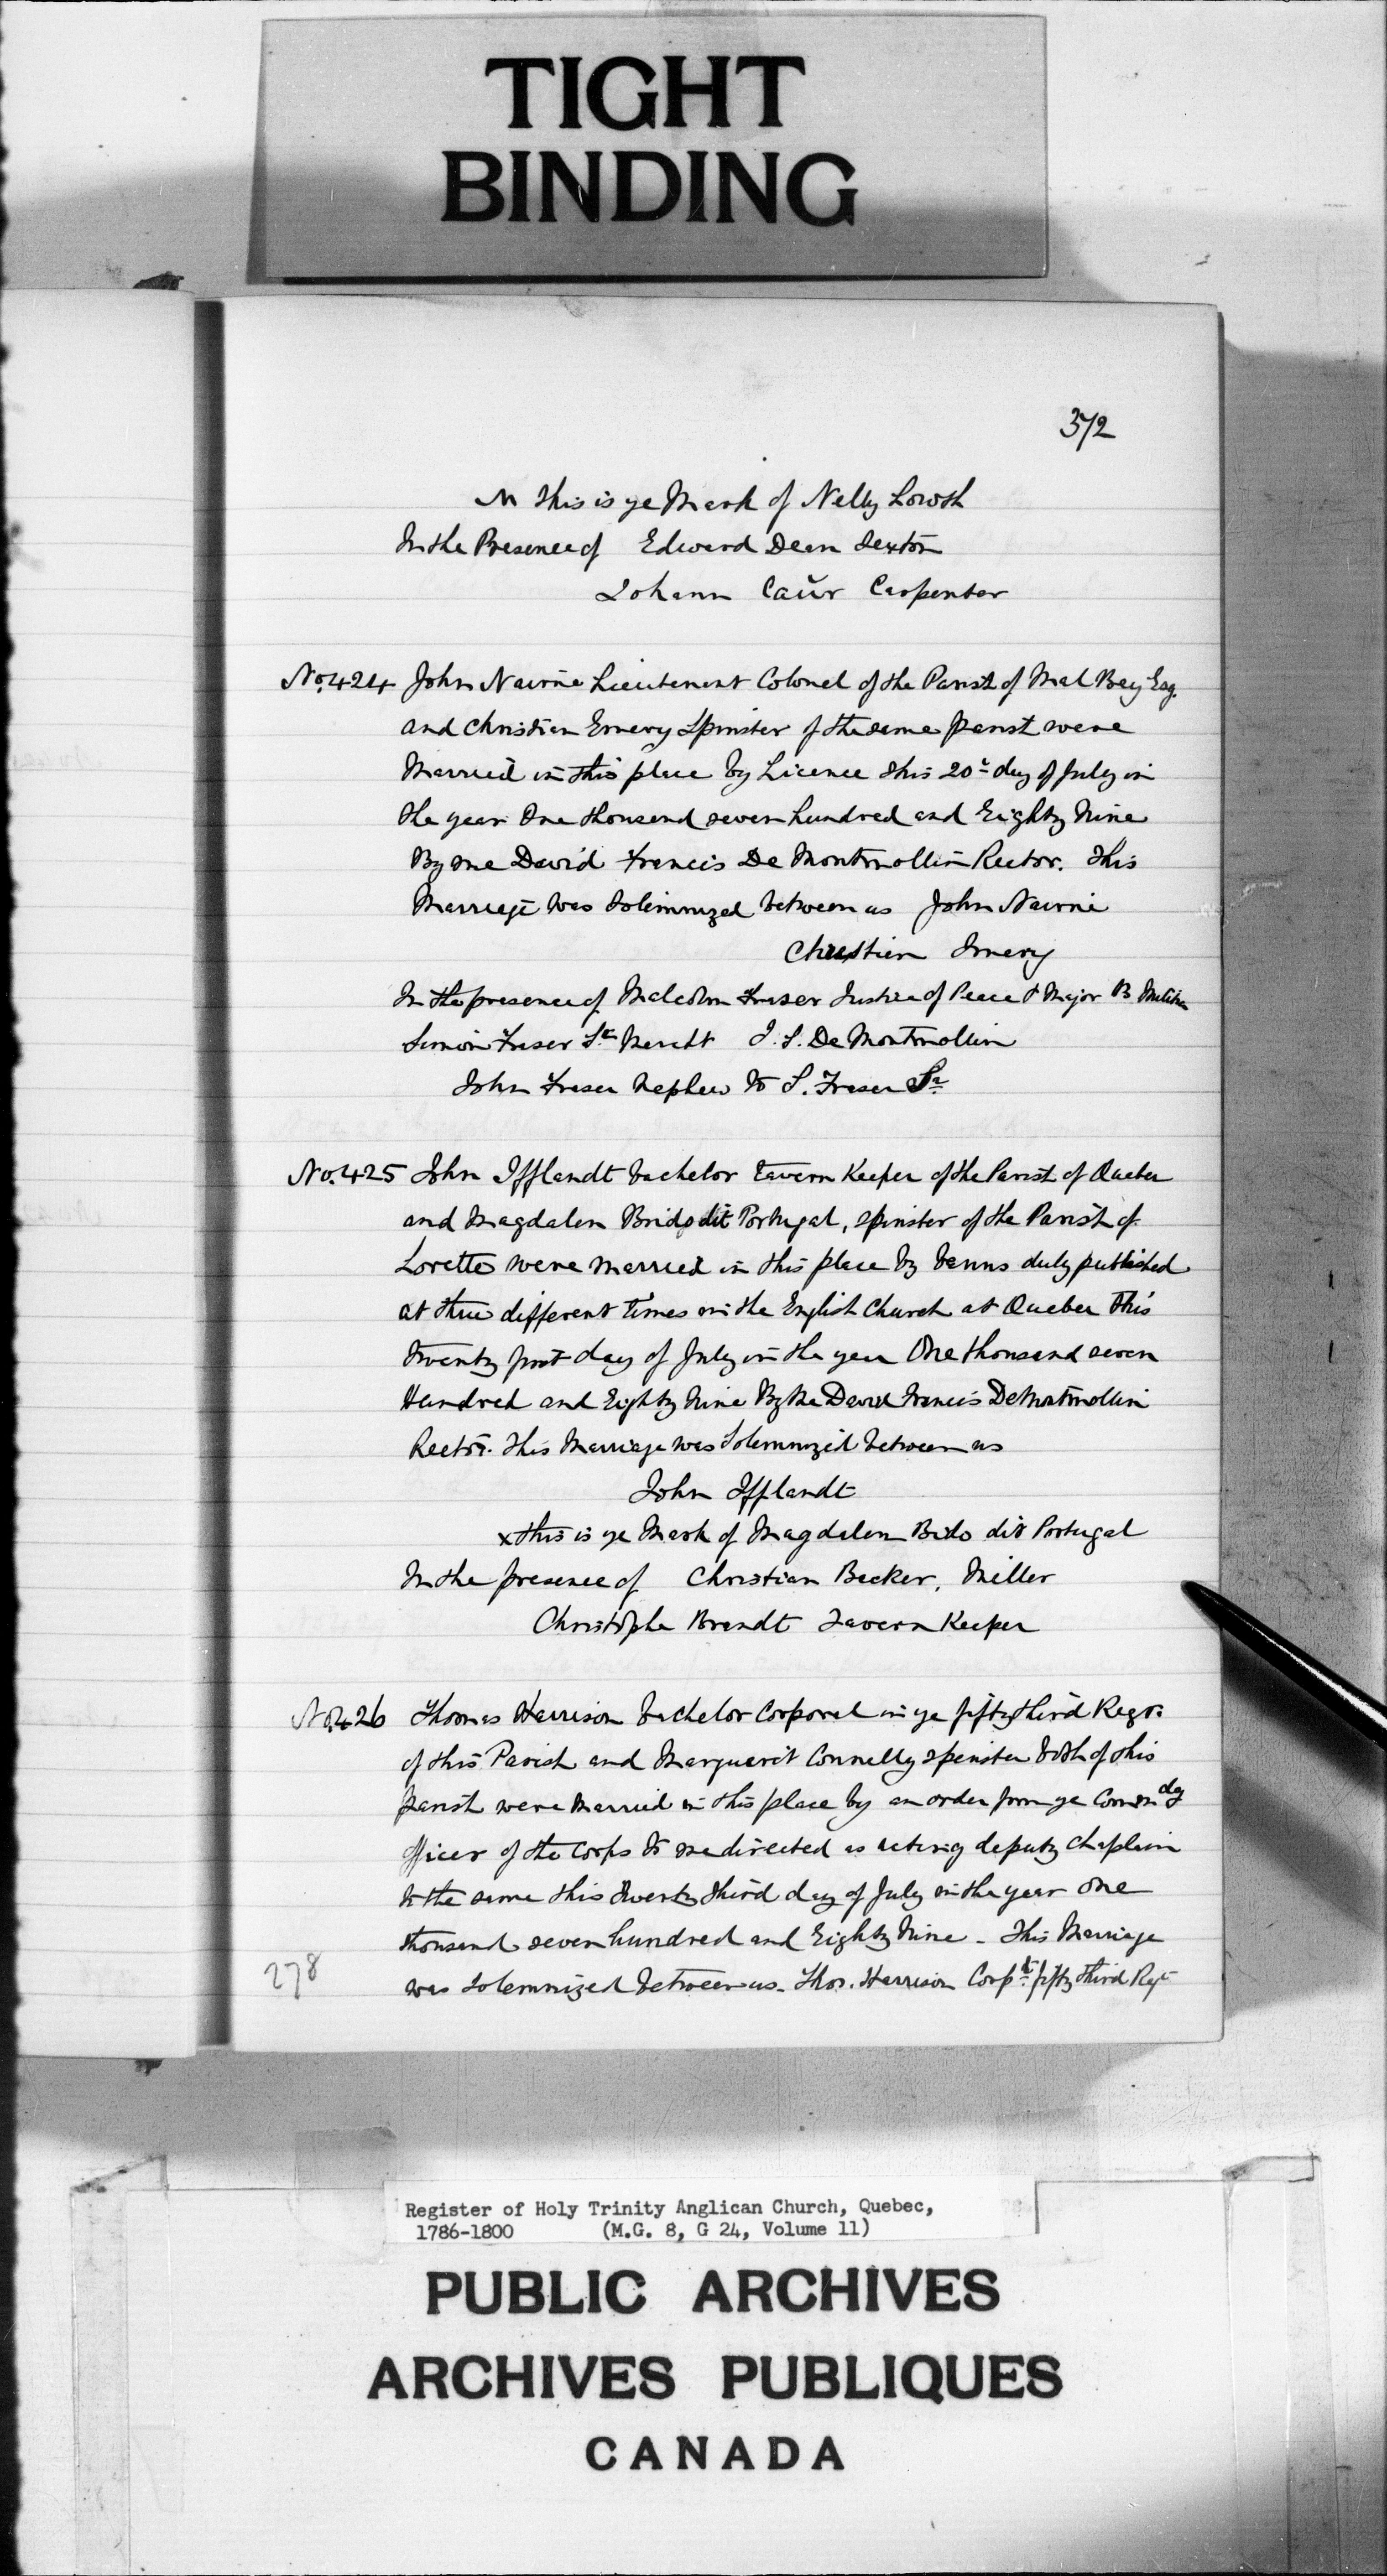 TIGHT
BINDING
372
M This is ye Mark of Nelly Lowth
In the Presence of Edward Dean Sexton
Johann Caŭr Carpenter
No. 424 John Nairne Lieutenant Colonel of the Parish of Mal Bay Esq.
and Christian Emery Spinster of the same Parish were
Married in this place by Licence this 20th day of July in
the year One thousand seven hundred and Eighty Nine
By me David Francis De Montmollin Rector. This
Marriage was Solemnized between us John Nairne
Christian Imery
In the presence of Malcolm Fraser Justice of Peace & Major B Militia
Simon Fraser Sr. Mercht J. S. De Montmollin
John Fraser Nephew to S. Fraser Sr.
No. 425 John Ifflandt bachelor Tavern Keeper of the Parish of Quebec
and Magdalen Brido dit Portugal, spinster of the Parish of
Lorette were married in this place by banns duly published
at three different times in the English Church at Quebec this
twenty first day of July in the year One thousand seven
Hundred and Eighty Nine By Me David Francis DeMontmollin
Rector. This Marriage was Solemnized between us
John Ifflandt
x this is ye Mark of Magdalen Bido dit Portugal
In the presence of Christian Becker, Miller
Christophe Brandt Tavern Keeper
No. 426 Thomas Harrison bachelor Corporal in ye fifty third Regt.
of this Parish and Marguerit Connelly spinster both of this
Parish were Married in this place by an order from ye Commdg
officer of the Corps to me directed as acting deputy Chaplain
to the same this twenty third day of July in the year One
thousand seven hundred and Eighty Nine - This Marriage
278
was solemnized between us - Thos. Harrison Corpl. fifty third Regt
Register of Holy Trinity Anglican Church, Quebec,
1786-1800 (M.G. 8, G 24, Volume 11)
PUBLIC ARCHIVES
ARCHIVES PUBLIQUES
CANADA